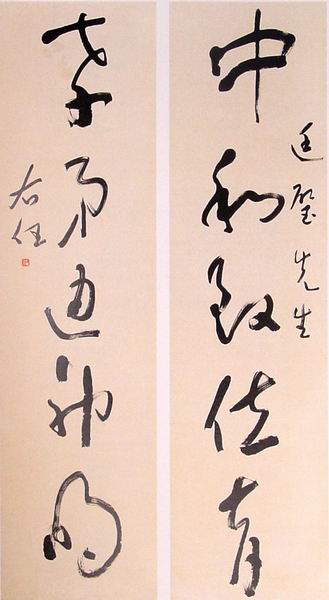 廷璧先生
中和致位育
孝弟通神明
右任